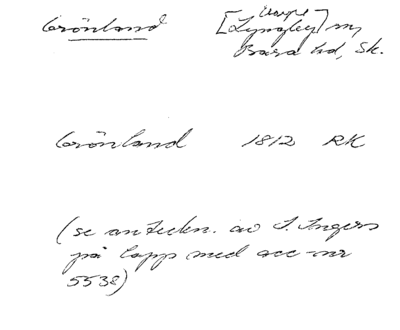 Grönland [Lyngby] sn,
Bara hd, Sk.
Grönland 1812 RK
(se anteckn. av I. Ingers
på lapp med acc-nr
5538)